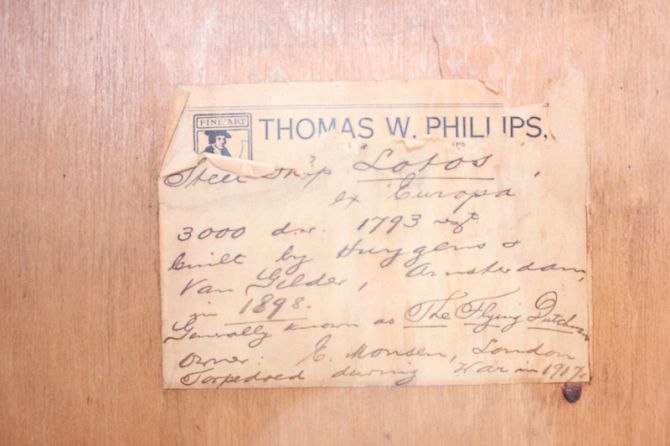 FINE ART
THOMAS W. PHILLIPS,
Steel Ship Lotos,
ex Europa
3000 d.w. 1793 regt
built by Huygens &
Van Gelder, Amsterdam,
in 1898.
Generally known as The Flying Dutchman
Owner: E. Monsen, London
Torpedoed during War in 1917.